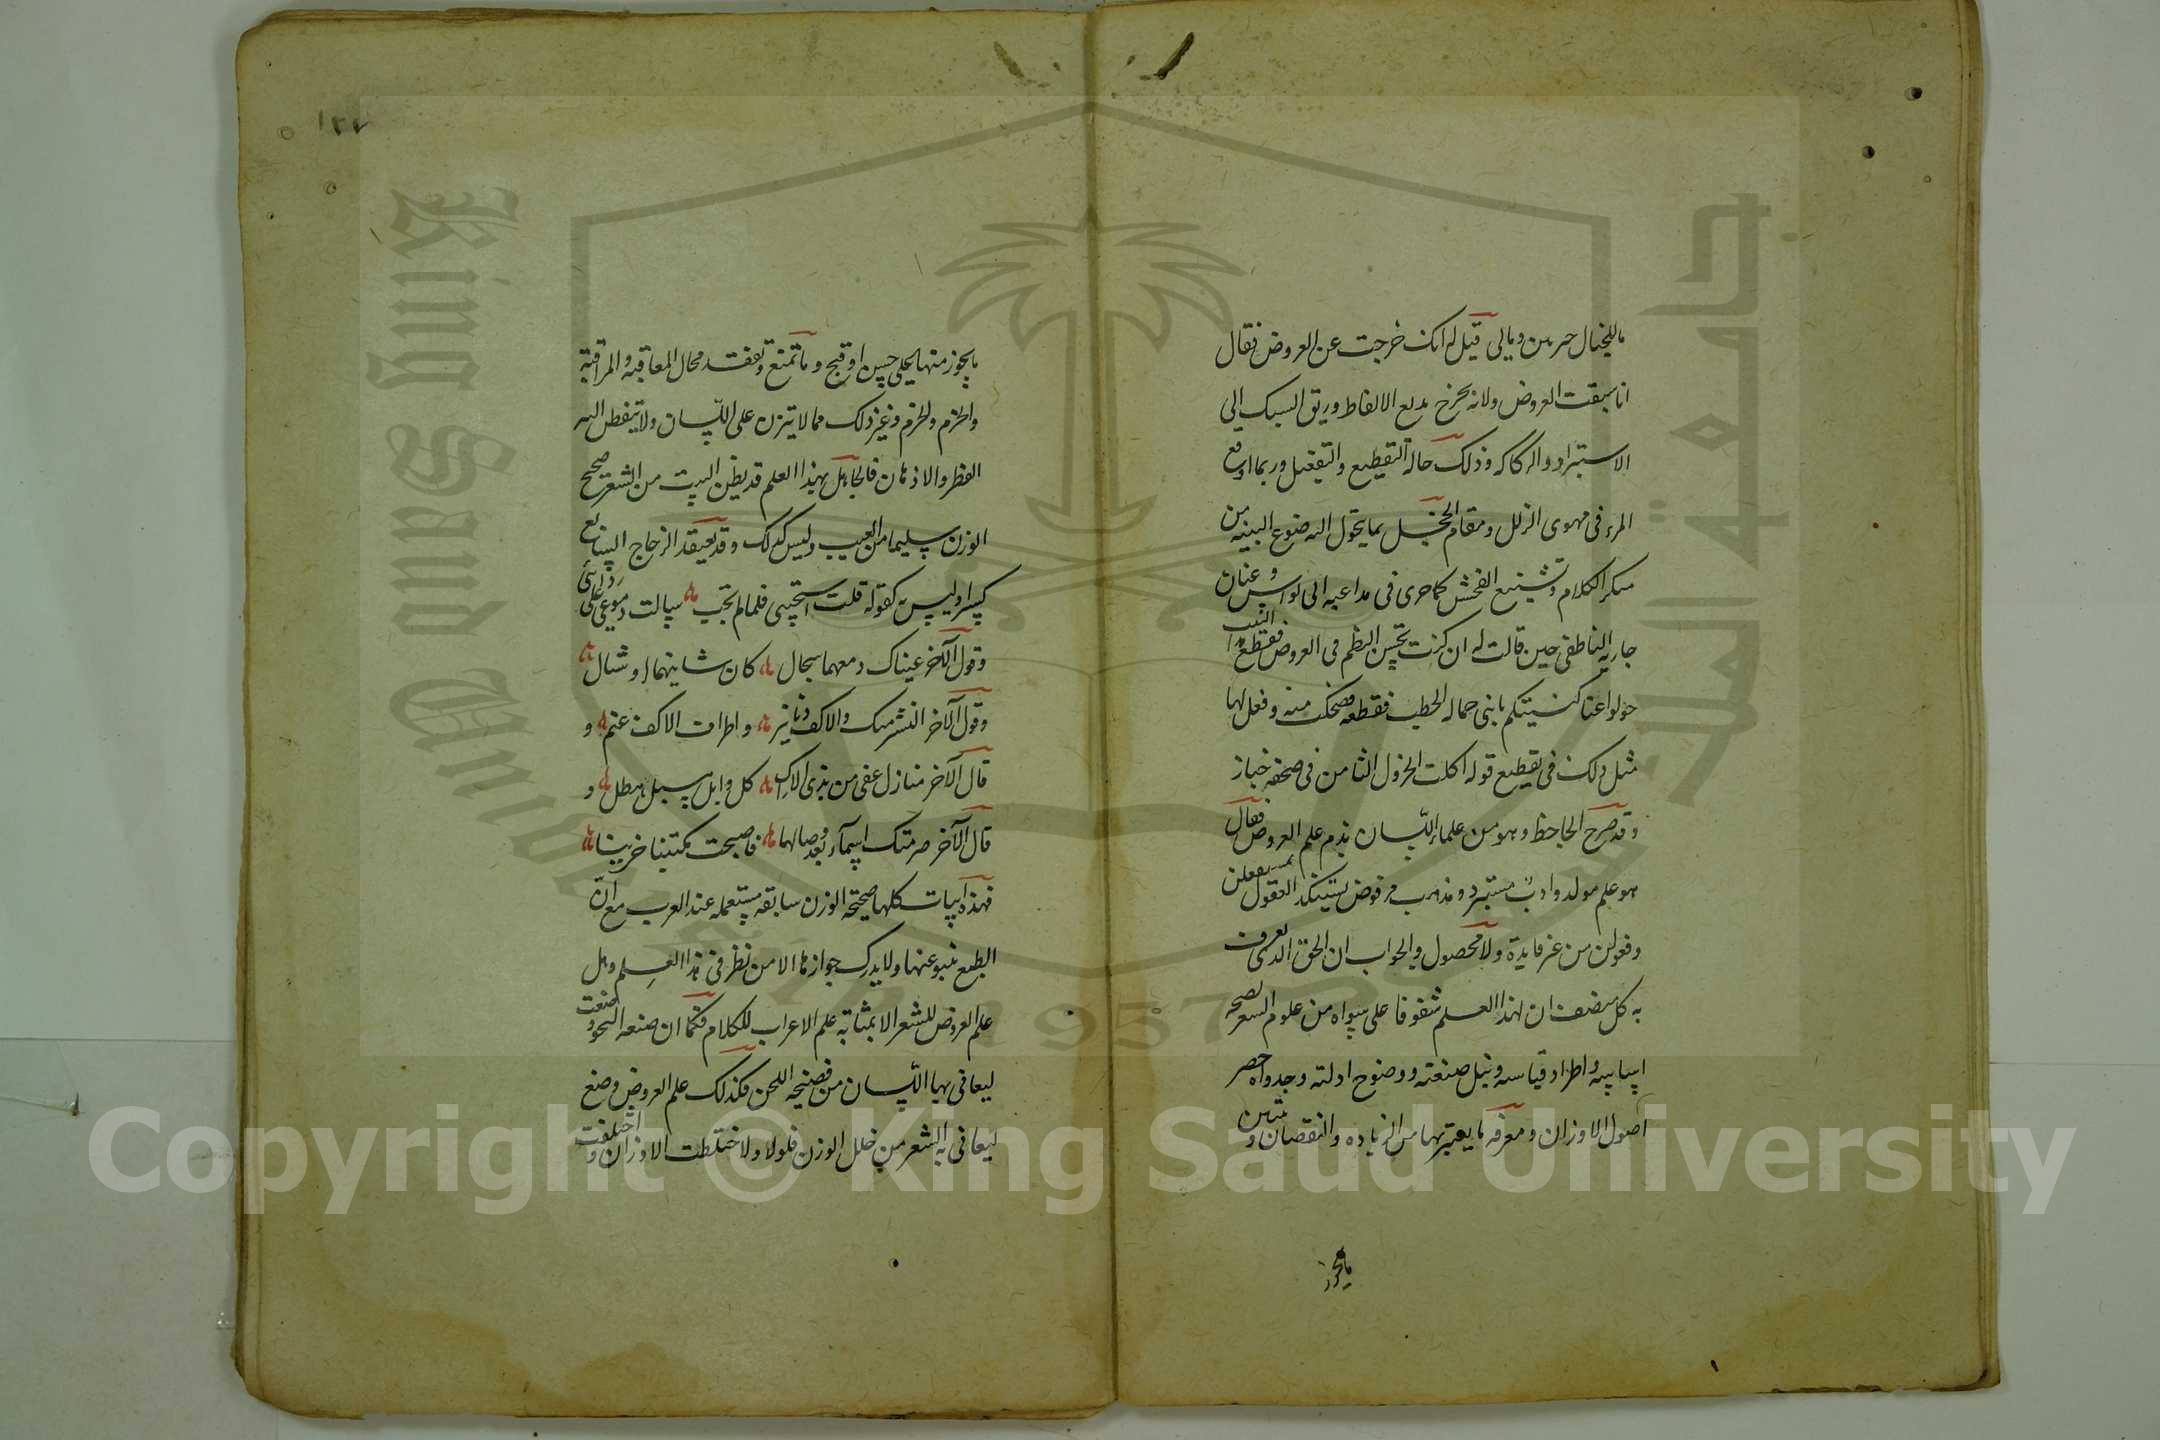 ما للخيال خبرين وما لي قيل له انك خرجت عن العروض فقال
انا سبقت العروض ولانه يخرج بديع الالفاظ وريق السبك الى
الاستبراد والركاكه وذلك حالة التقطيع والتفعيل وربما اوقع
المرء فى مهوى الزلل ومقام الخجل بما يتحول اليه صنوع البنيه من
منكر الكلام وشنيع الفحش كما جرى فى مداعبه ابى نواس وعنان
جاريه الناطفى حين قالت له ان كنت تحسن النظم فى العروض فقطع هذا البيت
حولوا عنا كنيستكم يا بنى حماله الحطب فقطعه فضحكت منه وفعل لها
مثل ذلك فى تقطيع قوله اكلت الخردل الشامى فى صحفه خباز
وقد صرح الجاحظ وهو من علماء اللسان بذم علم العروض فقال
هو علم مولد وادب مستبرد ومذهب مرفوض يستنكد العقول بمستفعلن
وفعولن من غير فايدة ولا محصول والجواب ان الحق الذى يعرف
به كل منصف ان لهذا العلم شفوفا على سواه من علوم الشعر لصحه
اساسه واطراد قياسه ونبل صنعته ووضوح ادلته وجدواه حصر
اصول الاوزان ومعرفه ما يعتريها من الزياده والنقصان وتبين
ما يجوز
١٢٧
ما يجوز منها على حسن او قبح وما تمنع وتفقد محال المعاقبه والمراقبة
والخزم والخرم وغير ذلك مما لا يتزن على اللسان ولا تتفطن اليه
الفطر والاذهان فالجاهل بهذا العلم قد يظن البيت من الشعر صحيح
الوزن سليما من العيب وليس كذلك وقد يعتقد الزحاف السايغ
كسرا وليس به كقوله قلت استجيبى فلما لم تجب سالت دموعى على ردائى
وقول الآخر عيناك دمعهما سجال كان شانيهما اوشال
وقول الآخر النشر مسك والاكف دنانير واطراف الاكف عنم و
قال الآخر منازل عفى من بذى الاراك كل وابل مسبل هطل و
قال الآخر صرمتك اسمآء بعد وصالها فاصبحت مكتئبا حزينا
فهذه ابيات كلها صحيحة الوزن سابقه مستعمله عند العرب مع ان
الطبع ينبو عنها ولا يدرك جوازها الا من نظر فى هذا العلم وهل
علم العروض للشعر الا بمثابة علم الاعراب للكلام فكما ان صنعه النحو وضعت
ليعافى بها اللسان من فضيحة اللحن فكذلك علم العروض وضع
ليعافى به الشعر من خلل الوزن فلولاه لاختلطت الاوزان واختلفت
Copyright © King Saud University
King Saud University
جامعة الملك سعود
1957